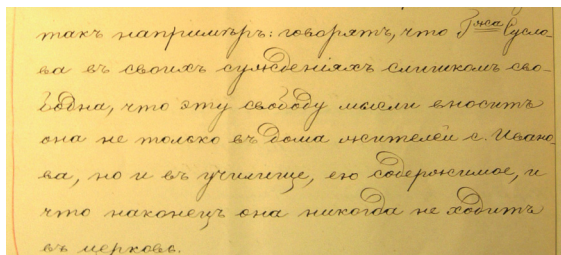 такъ напримѣръ: говорятъ, что Г-жа Сусло-
ва въ своихъ сужденіяхъ слишкомъ сво-
бодна, что эту свободу мысли вноситъ
она не только въ дома жителей с. Ивано-
ва, но и въ училище, ею содержимое, и
что наконецъ она никогда не ходитъ
въ церковь.